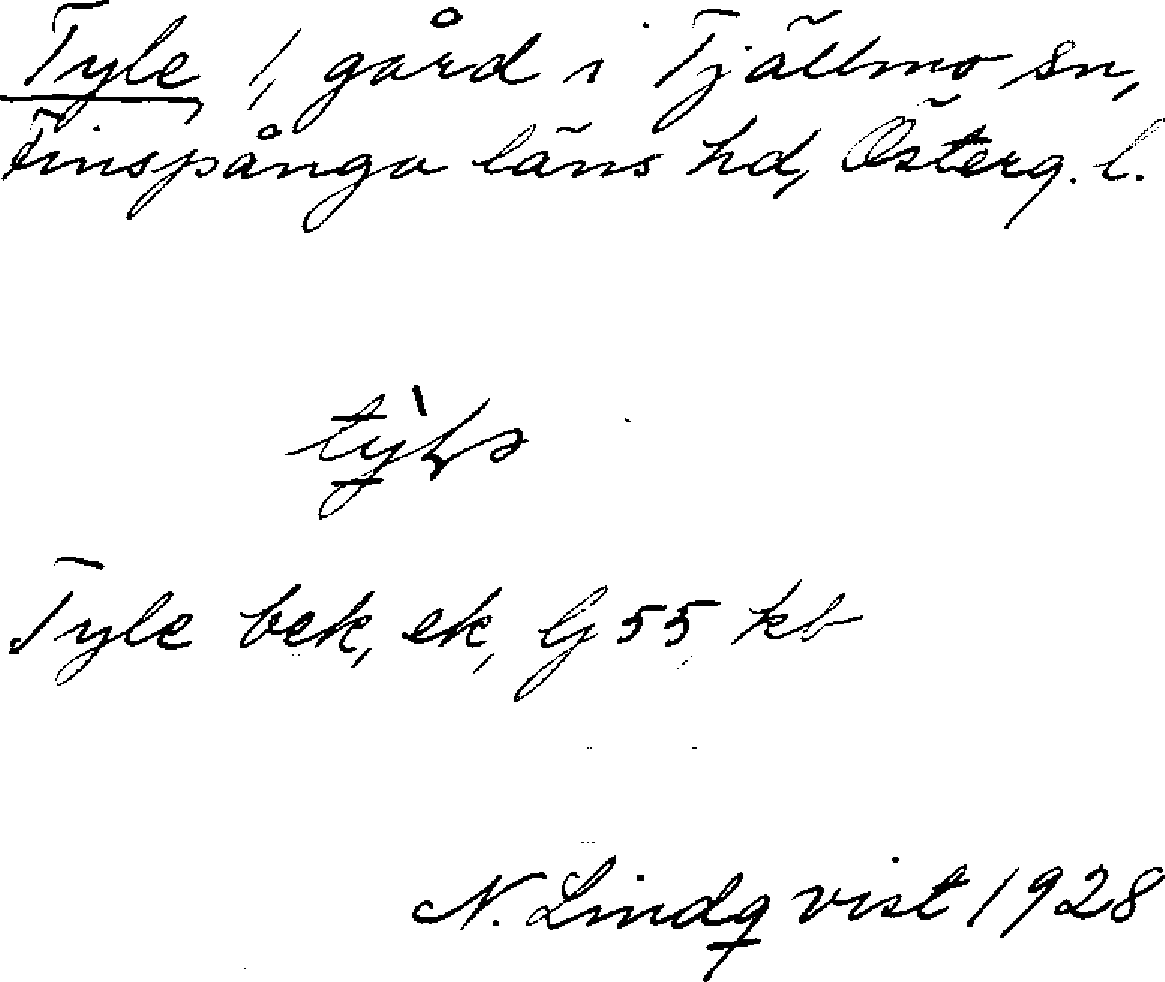 Tyle, 1, gård i Tjällmo sn,
Finspånga läns hd, Österg. l.
Tyle bek, ek, G 55 kb
N. Lindqvist 1928